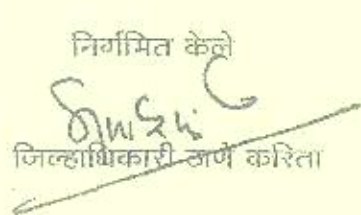 निर्गमित केले
जिल्हाधिकारी ठाणे करिता